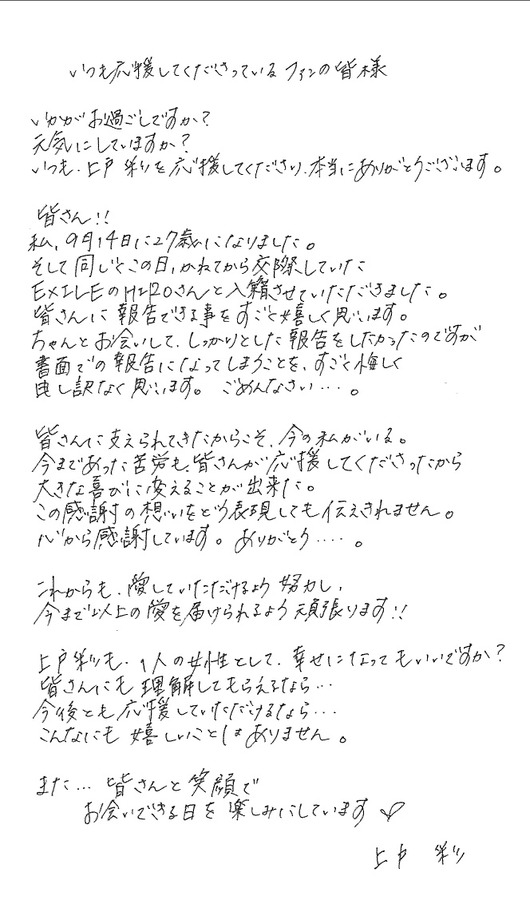 いつも応援してくださっているファンの皆様
いかがお過ごしですか？
元気にしていますか？
いつも、上戸彩を応援してくださり、本当にありがとうございます。
皆さん!!
私、9月14日に27歳になりました。
そして同じくこの日、かねてから交際していた
EXILEのHIROさんと入籍させていただきました。
皆さんに報告できる事をすごく嬉しく思います。
ちゃんとお会いして、しっかりとした報告をしたかったのですが
書面での報告になってしまうことを、すごく悔しく
申し訳なく思います。ごめんなさい…。
皆さんに支えられてきたからこそ、今の私がいる。
今まであった苦労も、皆さんが応援してくださったから
大きな喜びに変えることが出来た。
この感謝の想いをどう表現しても伝えきれません。
心から感謝しています。ありがとう….。
これからも、愛していただけるよう努力し、
今まで以上の愛を届けられるよう頑張ります!!
上戸彩も、1人の女性として、幸せになってもいいですか？
皆さんにも理解してもらえるなら…
今後とも応援していただけるなら…
こんなにも嬉しいことはありません。
また…皆さんと笑顔で
お会いできる日を楽しみにしています♡
上戸 彩